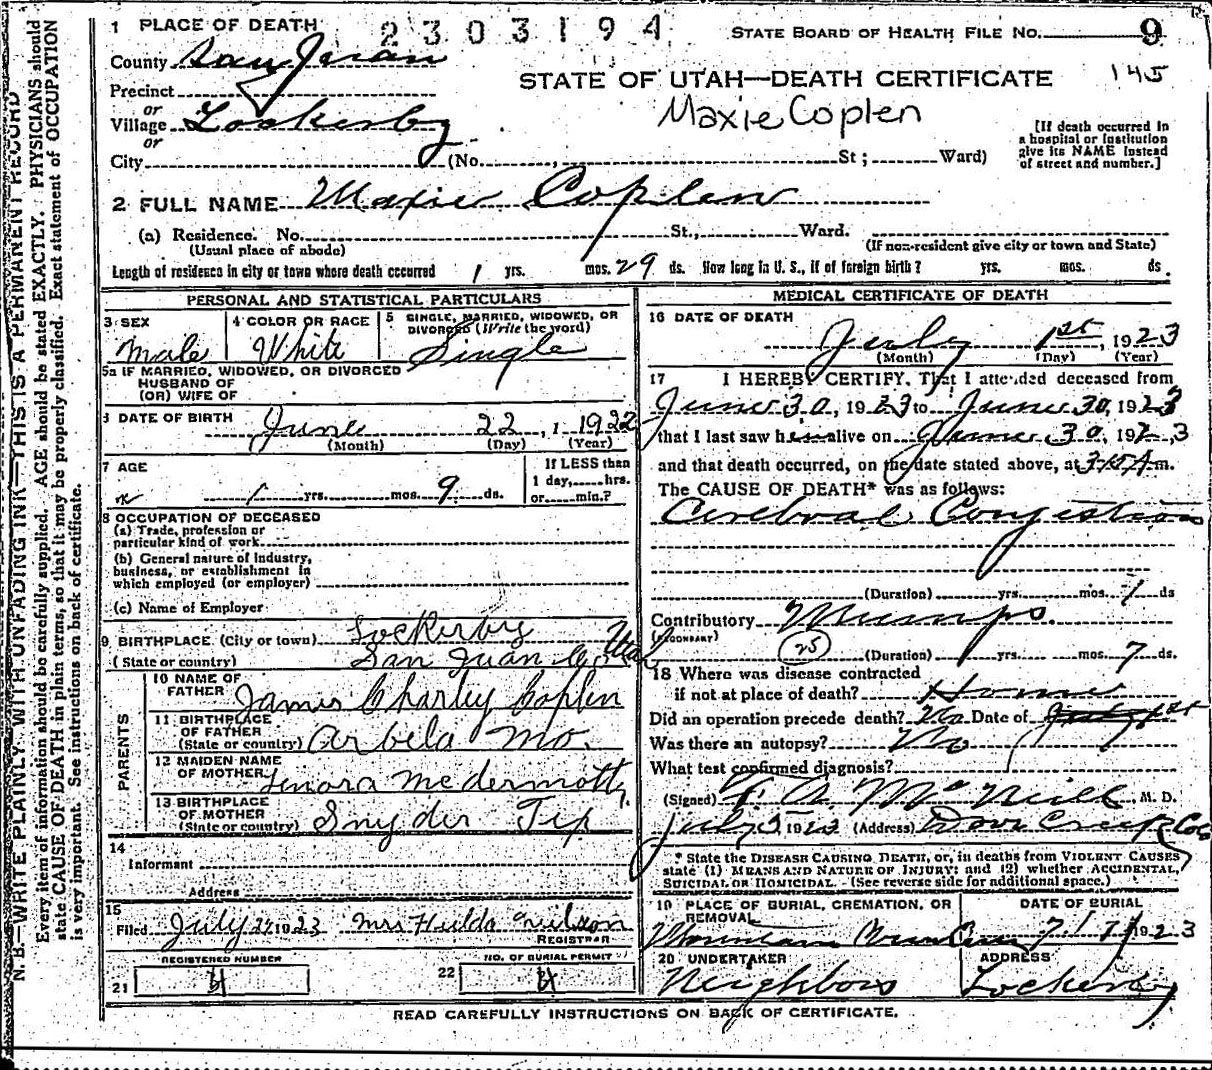 1 PLACE OF DEATH 2303194 STATE BOARD OF HEALTH FILE NO. 9
County San Juan
STATE OF UTAH—DEATH CERTIFICATE 145
Precinct
or
Village Lockerby
Maxie Coplen
or
City (No. , St ; Ward)
[If death occurred in
a hospital or institution
give its NAME instead
of street and number.]
2 FULL NAME Maxie Coplen
(a) Residence. No. St., Ward.
(Usual place of abode) (If non-resident give city or town and State)
Length of residence in city or town where death occurred 1 yrs. mos. 29 ds. How long in U. S., if of foreign birth? yrs. mos. ds.
PERSONAL AND STATISTICAL PARTICULARS
3 SEX 4 COLOR OR RACE 5 SINGLE, MARRIED, WIDOWED, OR
DIVORCED (Write the word)
Male White Single
5a IF MARRIED, WIDOWED, OR DIVORCED
HUSBAND OF
(OR) WIFE OF
6 DATE OF BIRTH June 22, 1922
(Month) (Day) (Year)
7 AGE If LESS than
1 day, hrs.
1 yrs. mos. 9 ds. or min.?
8 OCCUPATION OF DECEASED
(a) Trade, profession or
particular kind of work
(b) General nature of industry,
business, or establishment in
which employed (or employer)
(c) Name of Employer
9 BIRTHPLACE (City or town) Lockerby
(State or country) San Juan Co Utah
PARENTS
10 NAME OF
FATHER James Charley Coplen
11 BIRTHPLACE
OF FATHER
(State or country) Arbela Mo.
12 MAIDEN NAME
OF MOTHER Lenora McDermott
13 BIRTHPLACE
OF MOTHER
(State or country) Snyder Tex
14
Informant
Address
15
Filed July 1923 Mrs Hulda
REGISTRAR
REGISTERED NUMBER NO. OF BURIAL PERMIT
21 4 22 4
MEDICAL CERTIFICATE OF DEATH
16 DATE OF DEATH
July 1st, 1923
(Month) (Day) (Year)
17 I HEREBY CERTIFY, That I attended deceased from
June 30, 1923 to June 30, 1923
that I last saw h alive on June 30, 192,3
and that death occurred, on the date stated above, at 3:15 A m.
The CAUSE OF DEATH* was as follows:
Cerebral Congestion
(Duration) yrs. mos. 1 ds
Contributory Mumps.
25 (Duration) yrs. mos. 7 ds.
18 Where was disease contracted
if not at place of death? Home
Did an operation precede death? No Date of
Was there an autopsy? No
What test confirmed diagnosis?
(Signed) McNeill, M. D.
July 5 1923 (Address) Dove Creek Colo
* State the DISEASE CAUSING DEATH, or, in deaths from VIOLENT CAUSES
state (1) MEANS AND NATURE OF INJURY; and (2) whether ACCIDENTAL,
SUICIDAL OR HOMICIDAL. (See reverse side for additional space.)
19 PLACE OF BURIAL, CREMATION, OR
REMOVAL DATE OF BURIAL
Mountain 1923
20 UNDERTAKER ADDRESS
Neighbors Lockerby
READ CAREFULLY INSTRUCTIONS ON BACK OF CERTIFICATE.
N. B.—WRITE PLAINLY, WITH UNFADING INK—THIS IS A PERMANENT RECORD
Every item of information should be carefully supplied. AGE should be stated EXACTLY. PHYSICIANS should
state CAUSE OF DEATH in plain terms, so that it may be properly classified. Exact statement of OCCUPATION
is very important. See instructions on back of certificate.